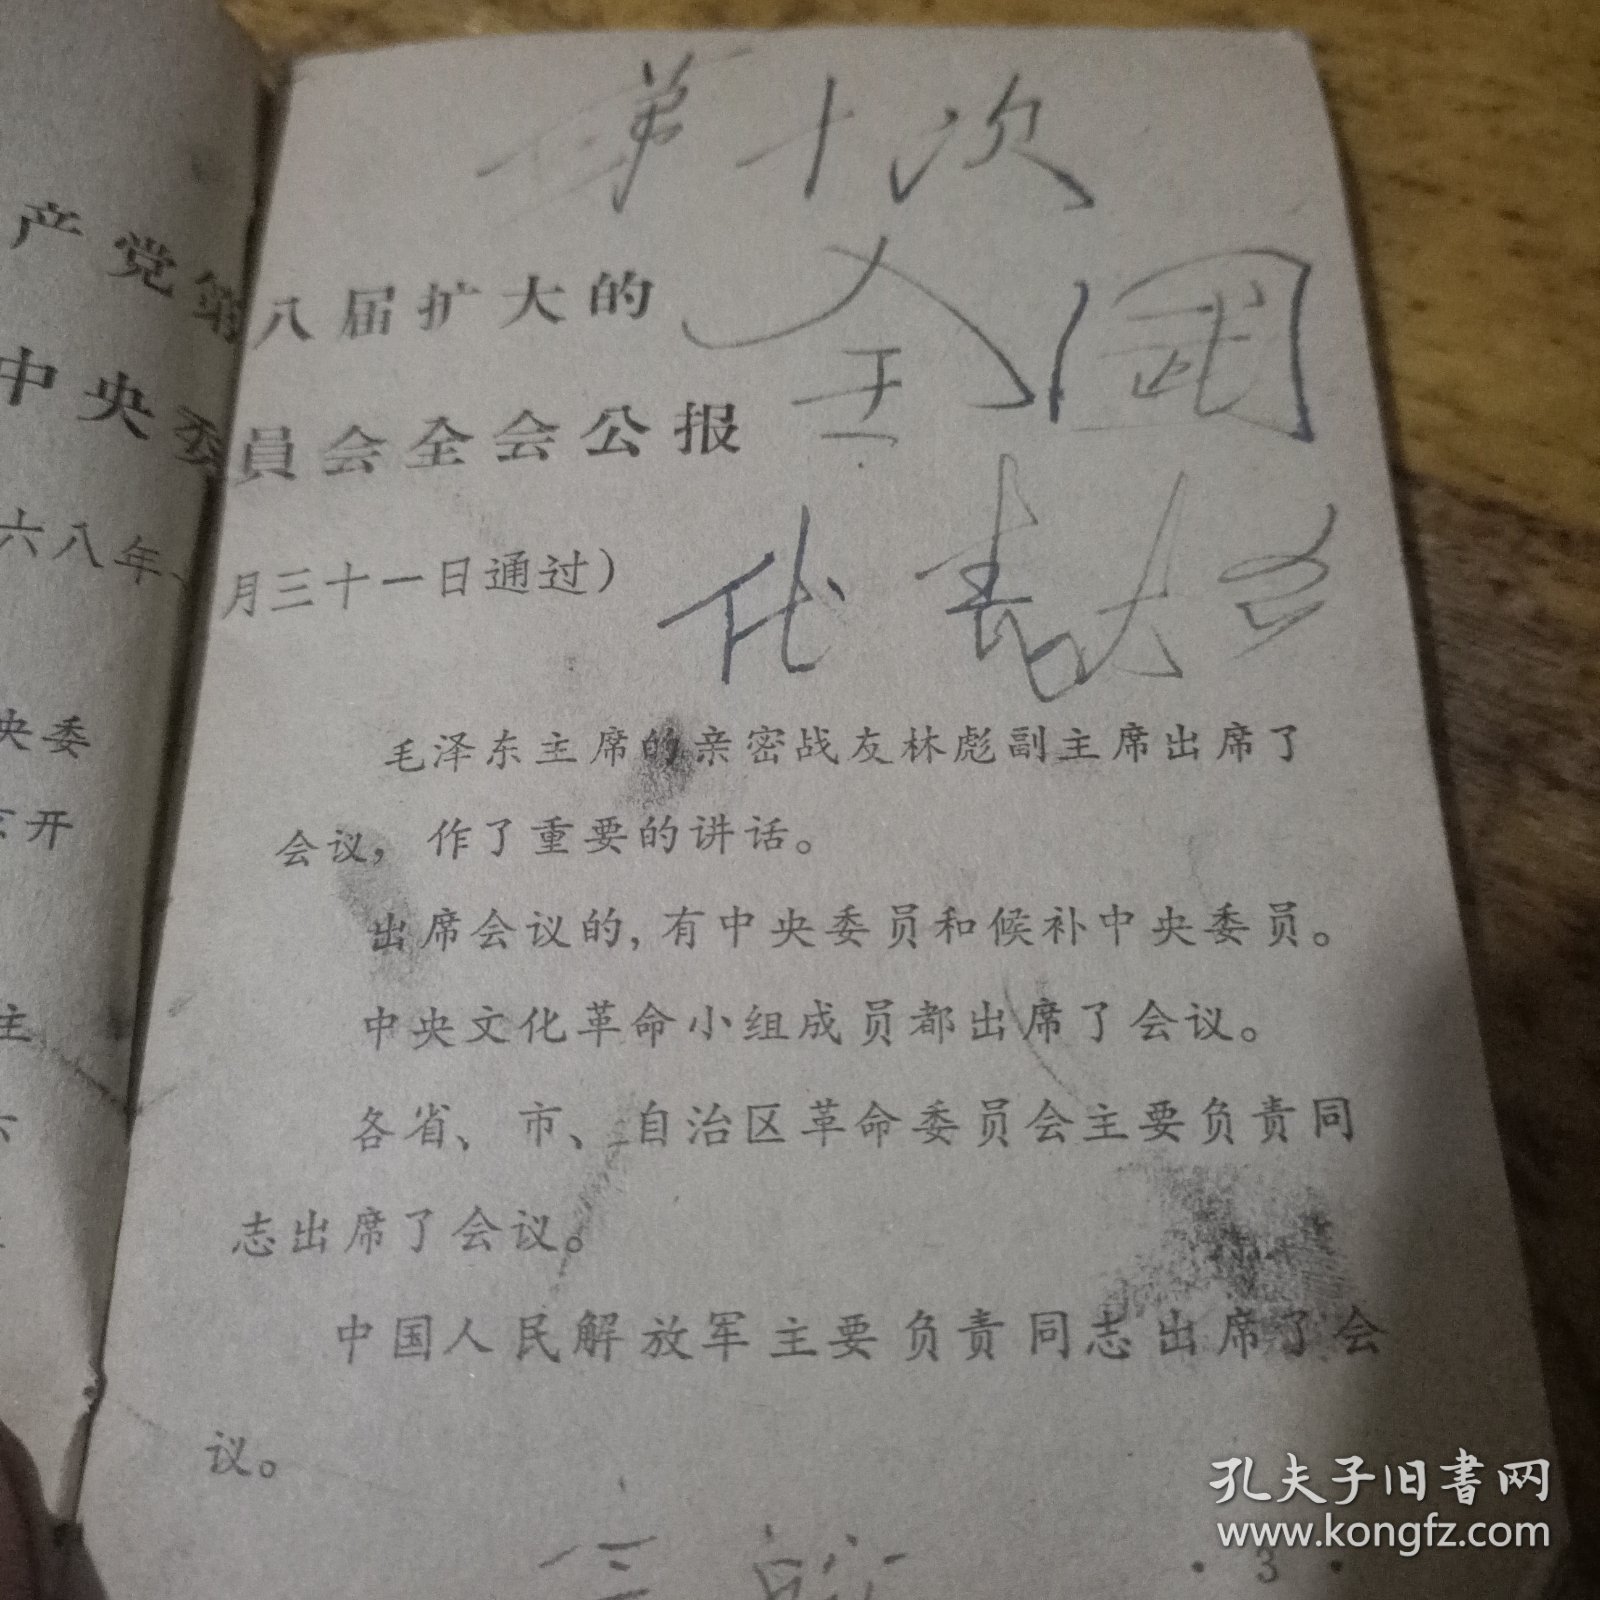 产党第
中央委
六八年
央委
京开
主
六
第十次
全国
代表大会
八届扩大的
員会全会公报
月三十一日通过)
毛泽东主席的亲密战友林彪副主席出席了
会议，作了重要的讲话。
出席会议的,有中央委员和候补中央委员。
中央文化革命小组成员都出席了会议。
各省、市、自治区革命委员会主要负责同
志出席了会议。
中国人民解放军主要负责同志出席了会
议。
·3·
孔夫子旧書网
www.kongfz.com